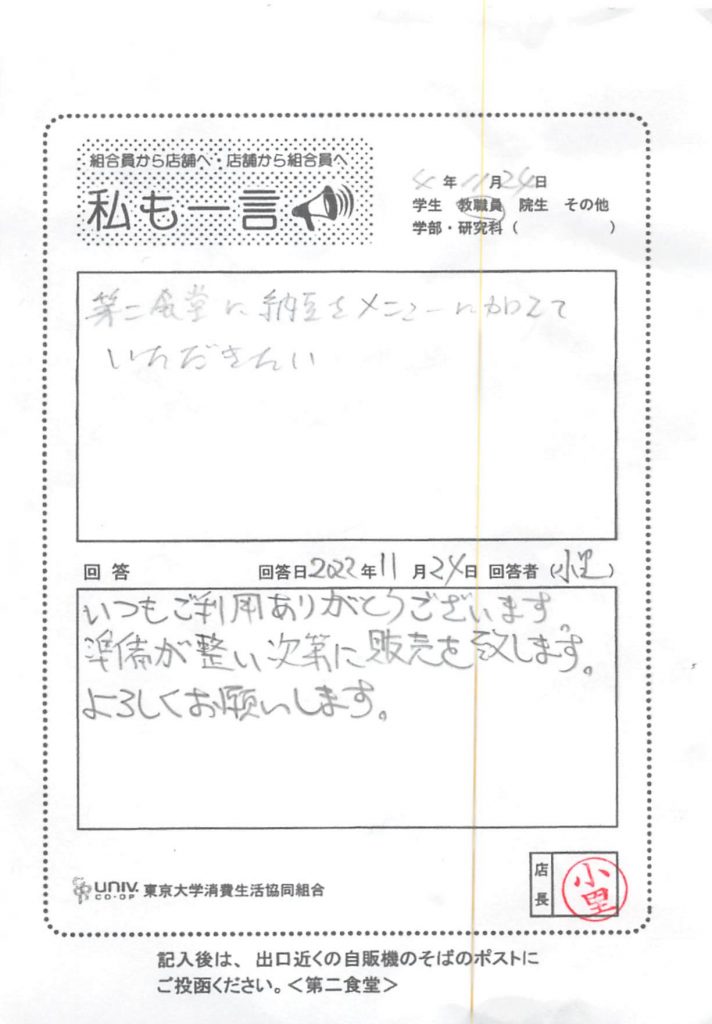 組合員から店舗へ・店舗から組合員へ
私も一言
4年11月24日
学生 教職員 院生 その他
学部・研究科（　　　）
第二食堂に納豆をメニューに加えて
いただきたい
回答 回答日2022年11月24日 回答者（小里）
いつもご利用ありがとうございます。
準備が整い次第に販売を致します。
よろしくお願いします。
UNIV. CO-OP 東京大学消費生活協同組合
店長 小里
記入後は、出口近くの自販機のそばのポストに
ご投函ください。＜第二食堂＞